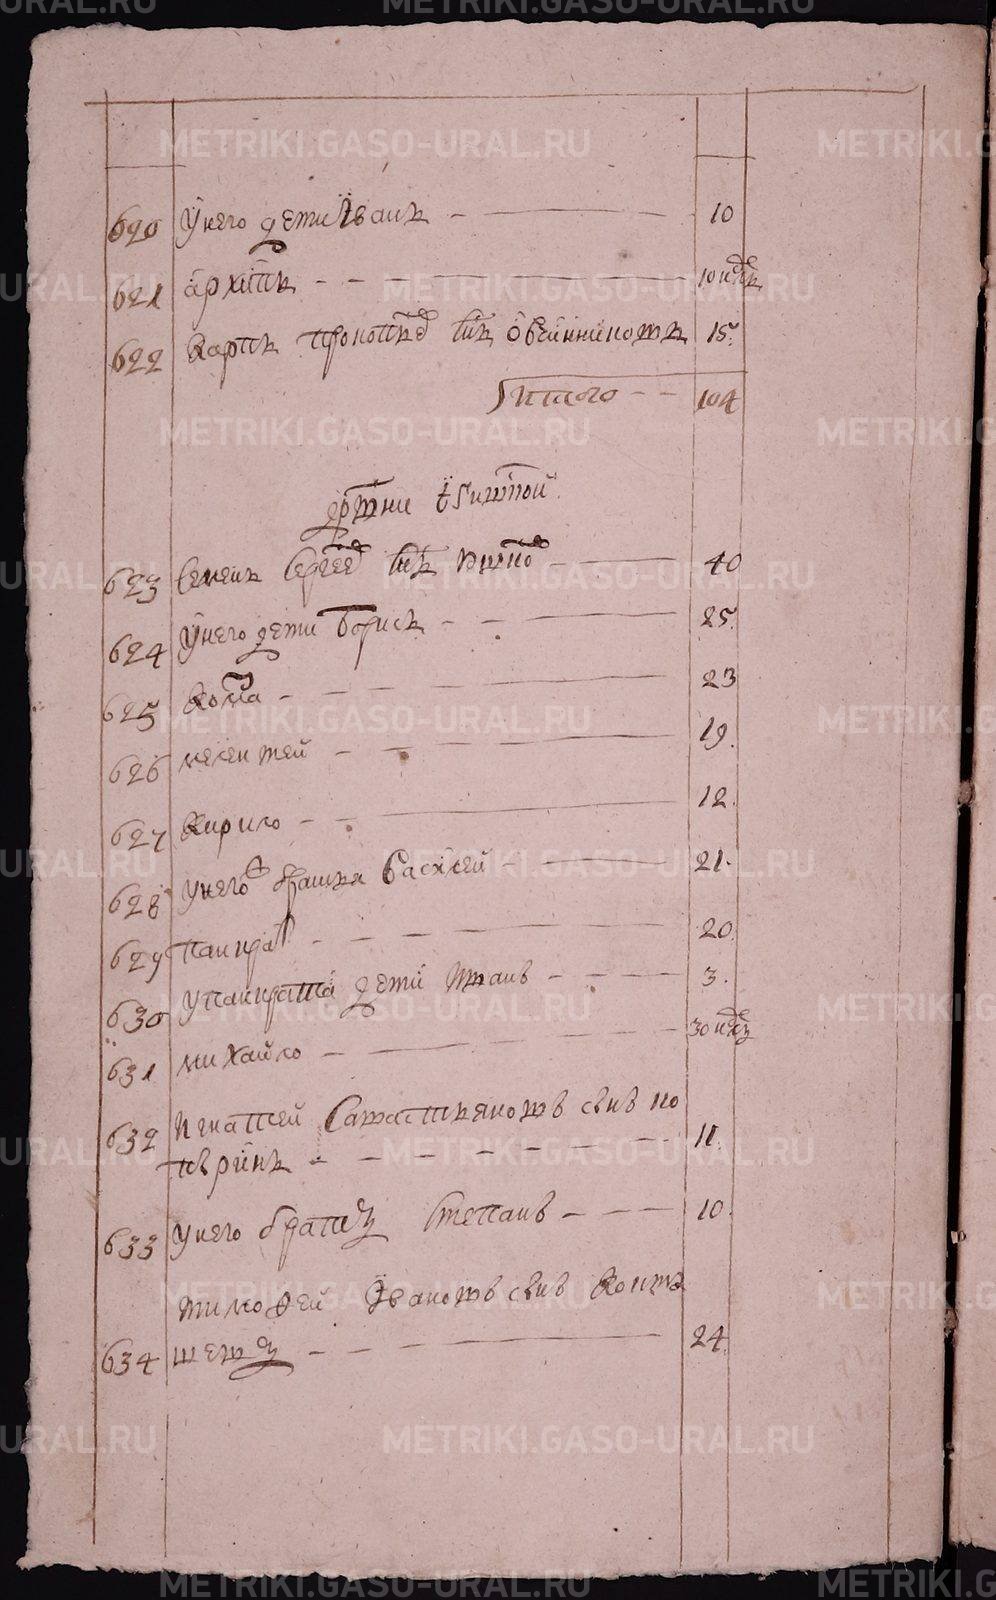 620 У него дети Іванъ 10
621 архипъ 10 нд
622 Карпъ прокопьевъ снъ Овчинниковъ 15
Итого 104
623 Семенъ Сергеевъ снъ 40
624 У него дети Борисъ 25
625 Козма 23
626 мелентей 19
627 Кирило 12
628 У него братья Василей 21
629 Панкрат 20
630 У панкрата дети Иванъ 3
631 михайло 30 нд
632 Игнатей Савастьяновъ снъ по
11
633 У него братъ Степанъ 10
тимофей Івановъ снъ
634 24
METRIKI.GASO-URAL.RU